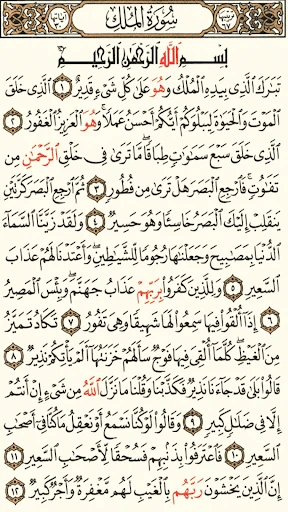 سُورَةُ المُلْكِ
بِسْمِ اللَّهِ الرَّحْمَٰنِ الرَّحِيمِ
تَبَارَكَ الَّذِي بِيَدِهِ الْمُلْكُ وَهُوَ عَلَىٰ كُلِّ شَيْءٍ قَدِيرٌ ١ الَّذِي خَلَقَ
الْمَوْتَ وَالْحَيَاةَ لِيَبْلُوَكُمْ أَيُّكُمْ أَحْسَنُ عَمَلًا ۚ وَهُوَ الْعَزِيزُ الْغَفُورُ ٢
الَّذِي خَلَقَ سَبْعَ سَمَاوَاتٍ طِبَاقًا ۖ مَّا تَرَىٰ فِي خَلْقِ الرَّحْمَٰنِ مِن
تَفَاوُتٍ ۖ فَارْجِعِ الْبَصَرَ هَلْ تَرَىٰ مِن فُطُورٍ ٣ ثُمَّ ارْجِعِ الْبَصَرَ كَرَّتَيْنِ
يَنقَلِبْ إِلَيْكَ الْبَصَرُ خَاسِئًا وَهُوَ حَسِيرٌ ٤ وَلَقَدْ زَيَّنَّا السَّمَاءَ
الدُّنْيَا بِمَصَابِيحَ وَجَعَلْنَاهَا رُجُومًا لِّلشَّيَاطِينِ ۖ وَأَعْتَدْنَا لَهُمْ عَذَابَ
السَّعِيرِ ٥ وَلِلَّذِينَ كَفَرُوا بِرَبِّهِمْ عَذَابُ جَهَنَّمَ ۖ وَبِئْسَ الْمَصِيرُ
٦ إِذَا أُلْقُوا فِيهَا سَمِعُوا لَهَا شَهِيقًا وَهِيَ تَفُورُ ٧ تَكَادُ تَمَيَّزُ
مِنَ الْغَيْظِ ۖ كُلَّمَا أُلْقِيَ فِيهَا فَوْجٌ سَأَلَهُمْ خَزَنَتُهَا أَلَمْ يَأْتِكُمْ نَذِيرٌ ٨
قَالُوا بَلَىٰ قَدْ جَاءَنَا نَذِيرٌ فَكَذَّبْنَا وَقُلْنَا مَا نَزَّلَ اللَّهُ مِن شَيْءٍ إِنْ أَنتُمْ
إِلَّا فِي ضَلَالٍ كَبِيرٍ ٩ وَقَالُوا لَوْ كُنَّا نَسْمَعُ أَوْ نَعْقِلُ مَا كُنَّا فِي أَصْحَابِ
السَّعِيرِ ١٠ فَاعْتَرَفُوا بِذَنبِهِمْ فَسُحْقًا لِّأَصْحَابِ السَّعِيرِ ١١
إِنَّ الَّذِينَ يَخْشَوْنَ رَبَّهُم بِالْغَيْبِ لَهُم مَّغْفِرَةٌ وَأَجْرٌ كَبِيرٌ ١٢